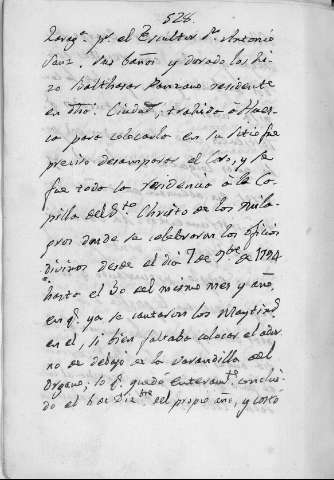 528.
Zarag.ª pr. el Escultor Dn. Antonio
Sanz. Sus baños y dorado los hi-
zo Balthasar Panzano residente
en dha. Ciudad, trahido à Hues-
ca para colocarlo en su sitio fue
preciso desamparar el Coro, y se
fue todo la residencia à la Ca-
pilla del Sto. Christo de los Mila-
gros donde se celebraron los oficios
divinos desde el dia 7 de 9bre. de 1794
hasta el 30 del mismo mes y año,
en q. ya se cantaron los Maytines
en el, si bien faltaba colocar el ador-
no de debajo de la varandilla del
Organo; lo q. quedó enteramte. conclui-
do el 6 de Dizbre. del propio año, y costó